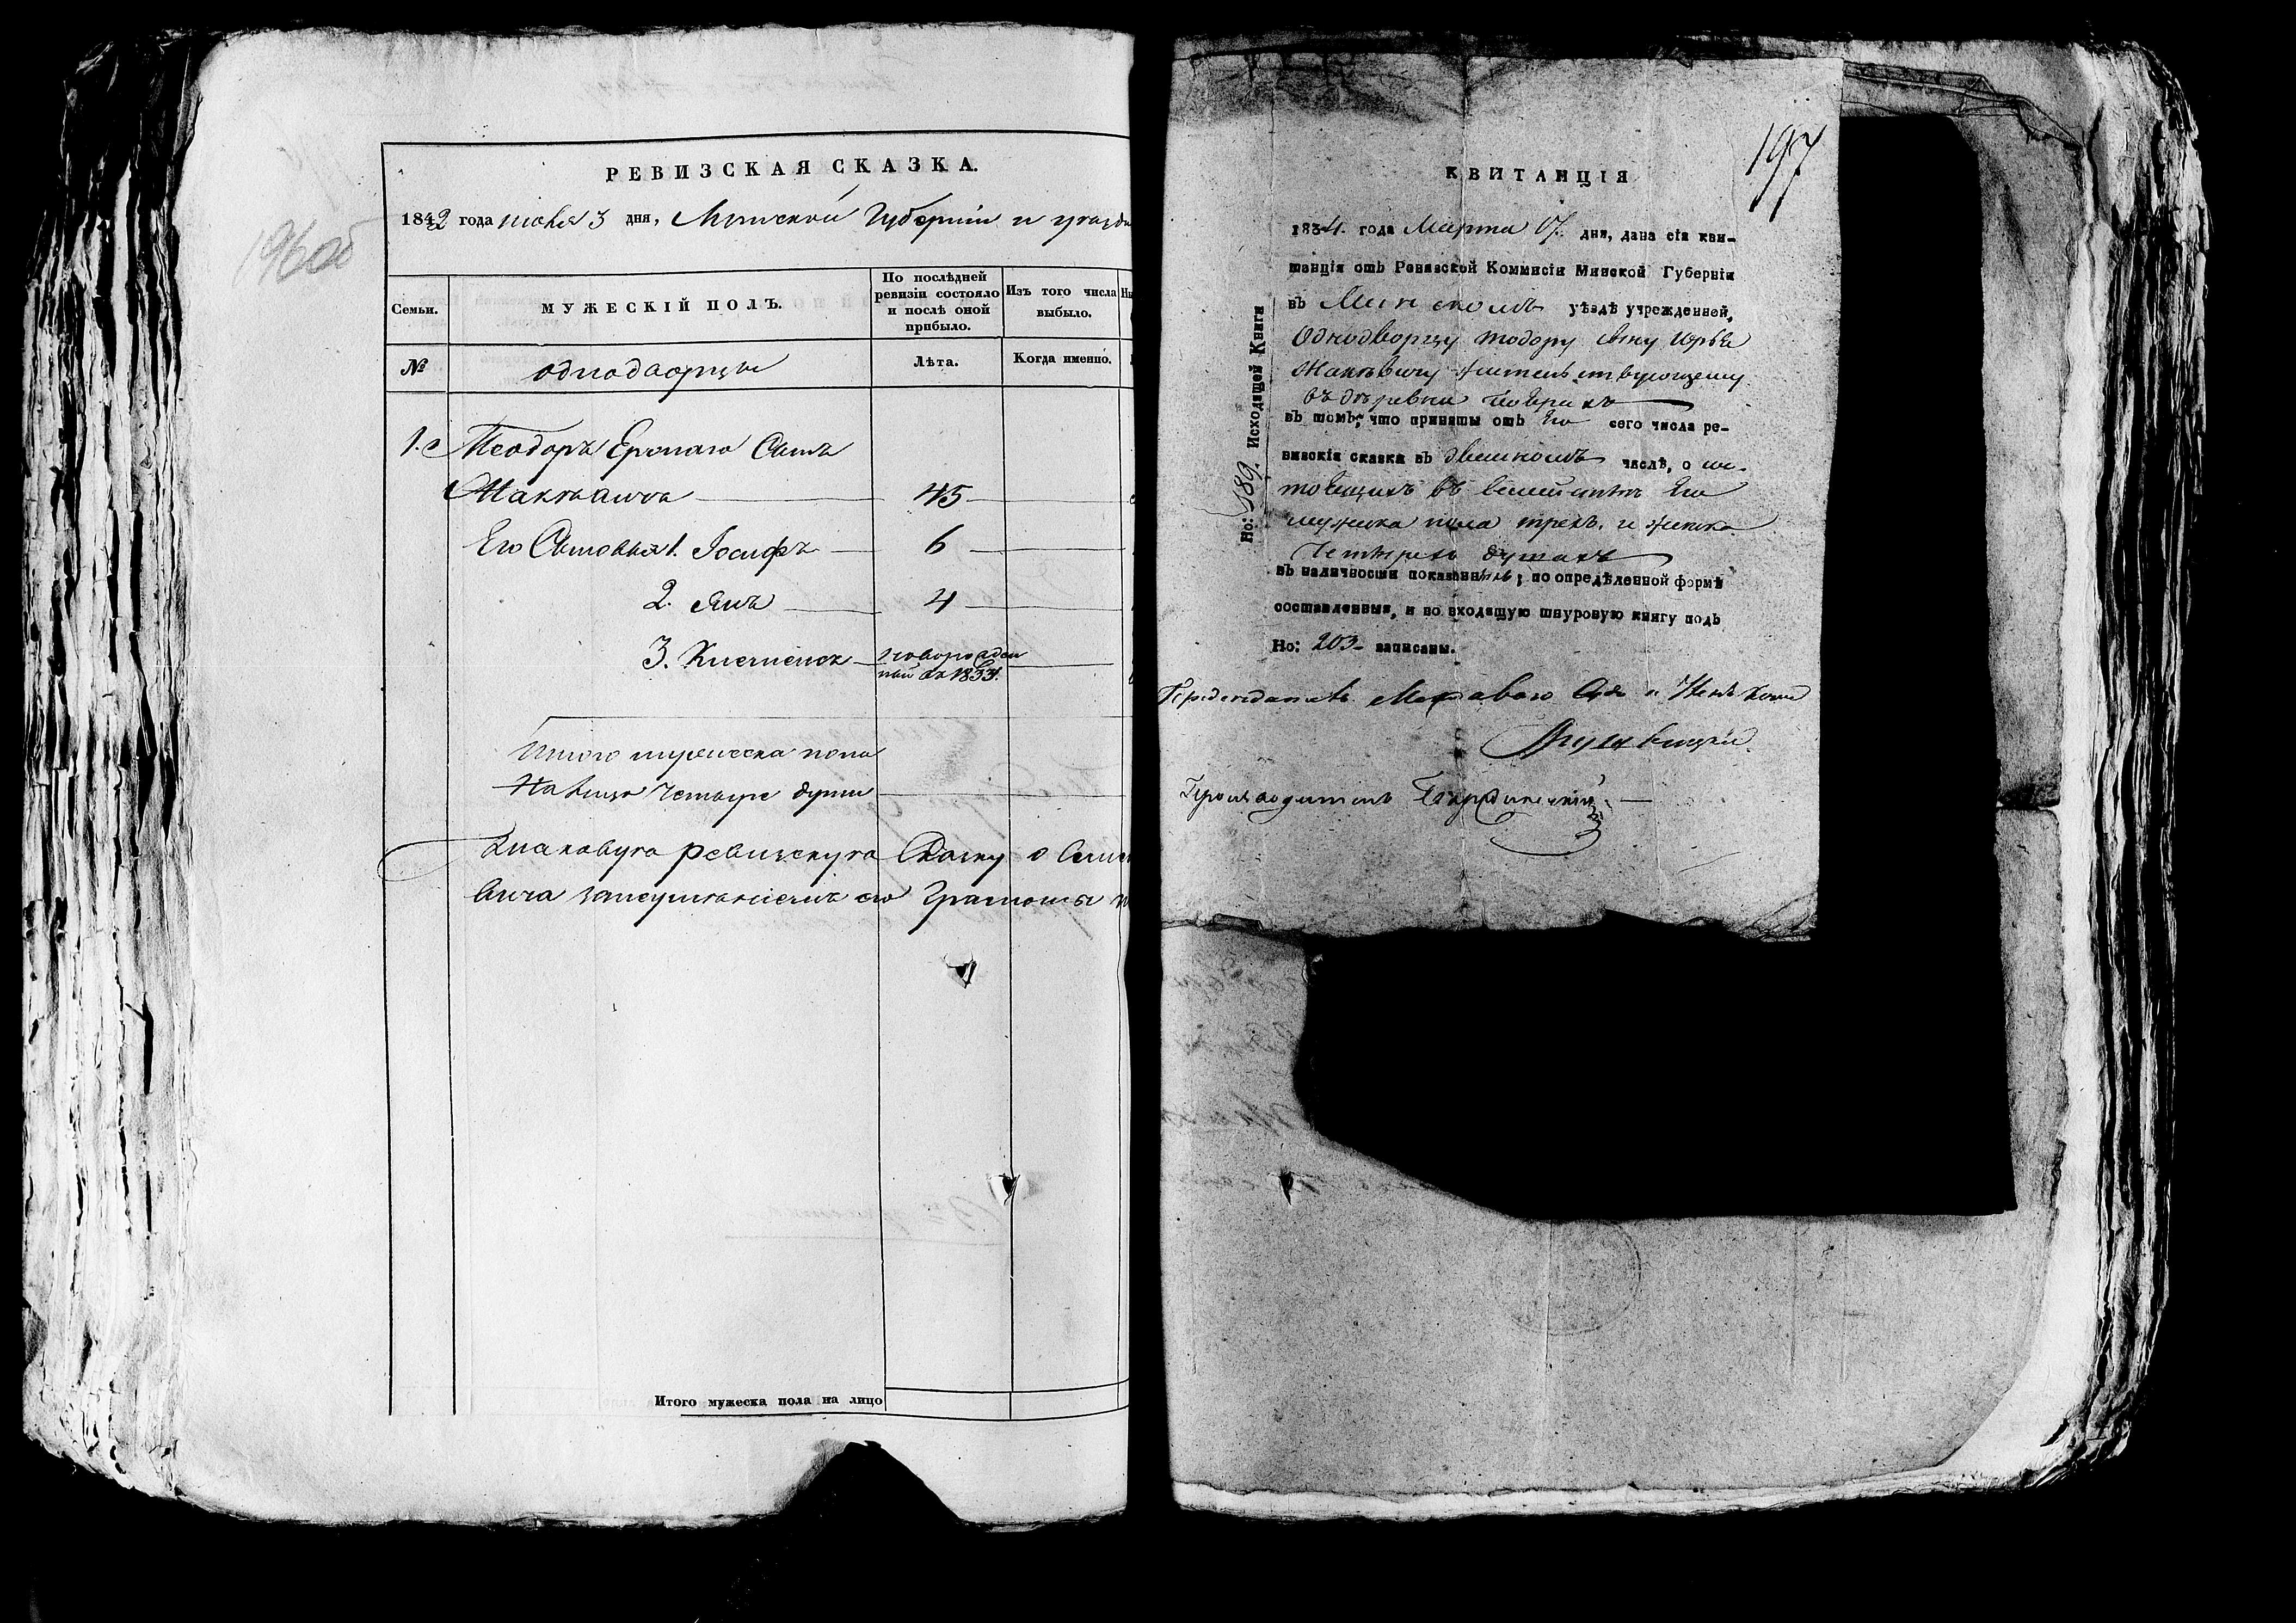 196об
РЕВИЗСКАЯ СКАЗКА.
1842 года июня 3 дня, Минской Губернии и уезда
Семьи.
МУЖЕСКІЙ ПОЛЪ.
По послѣдней ревизіи состояло и послѣ оной прибыло.
Изъ того числа выбыло.
№
однодворцы
Лѣта.
Когда именно.
1. Теодоръ Еронаго Сынъ
45
Его Сыновья 1. Іосифъ 6
2. Янъ 4
3. Клеменсъ новорожден
ный въ 183
Итого мужеска пола
На лицо Четыре души
Таковую ревизскую Сказку о
вича неумѣніемъ его Грамоты
Итого мужеска пола на лицо
197
КВИТАНЦІЯ
1834. года Марта 17. дня, дана сія кви-
танція отъ Ревизской Коммисіи Минской Губерніи
въ Минскомъ уѣздѣ учрежденной,
Однодворцу Тодору сыну Юрья
жительствующему
въ деревни
въ томъ, что приняты отъ Его сего числа ре-
визскія сказки въ двойномъ числѣ, о сос-
тоящихъ въ семействѣ Его
мужска пола трехъ. и женска
Четырехъ душахъ
въ наличности показанныхъ; по опредѣленной формѣ
составленныя, и во входящую шнуровую книгу подъ
Но: 203 записаны.
Но: 189. Исходящей Книги
Председатель
Производитель